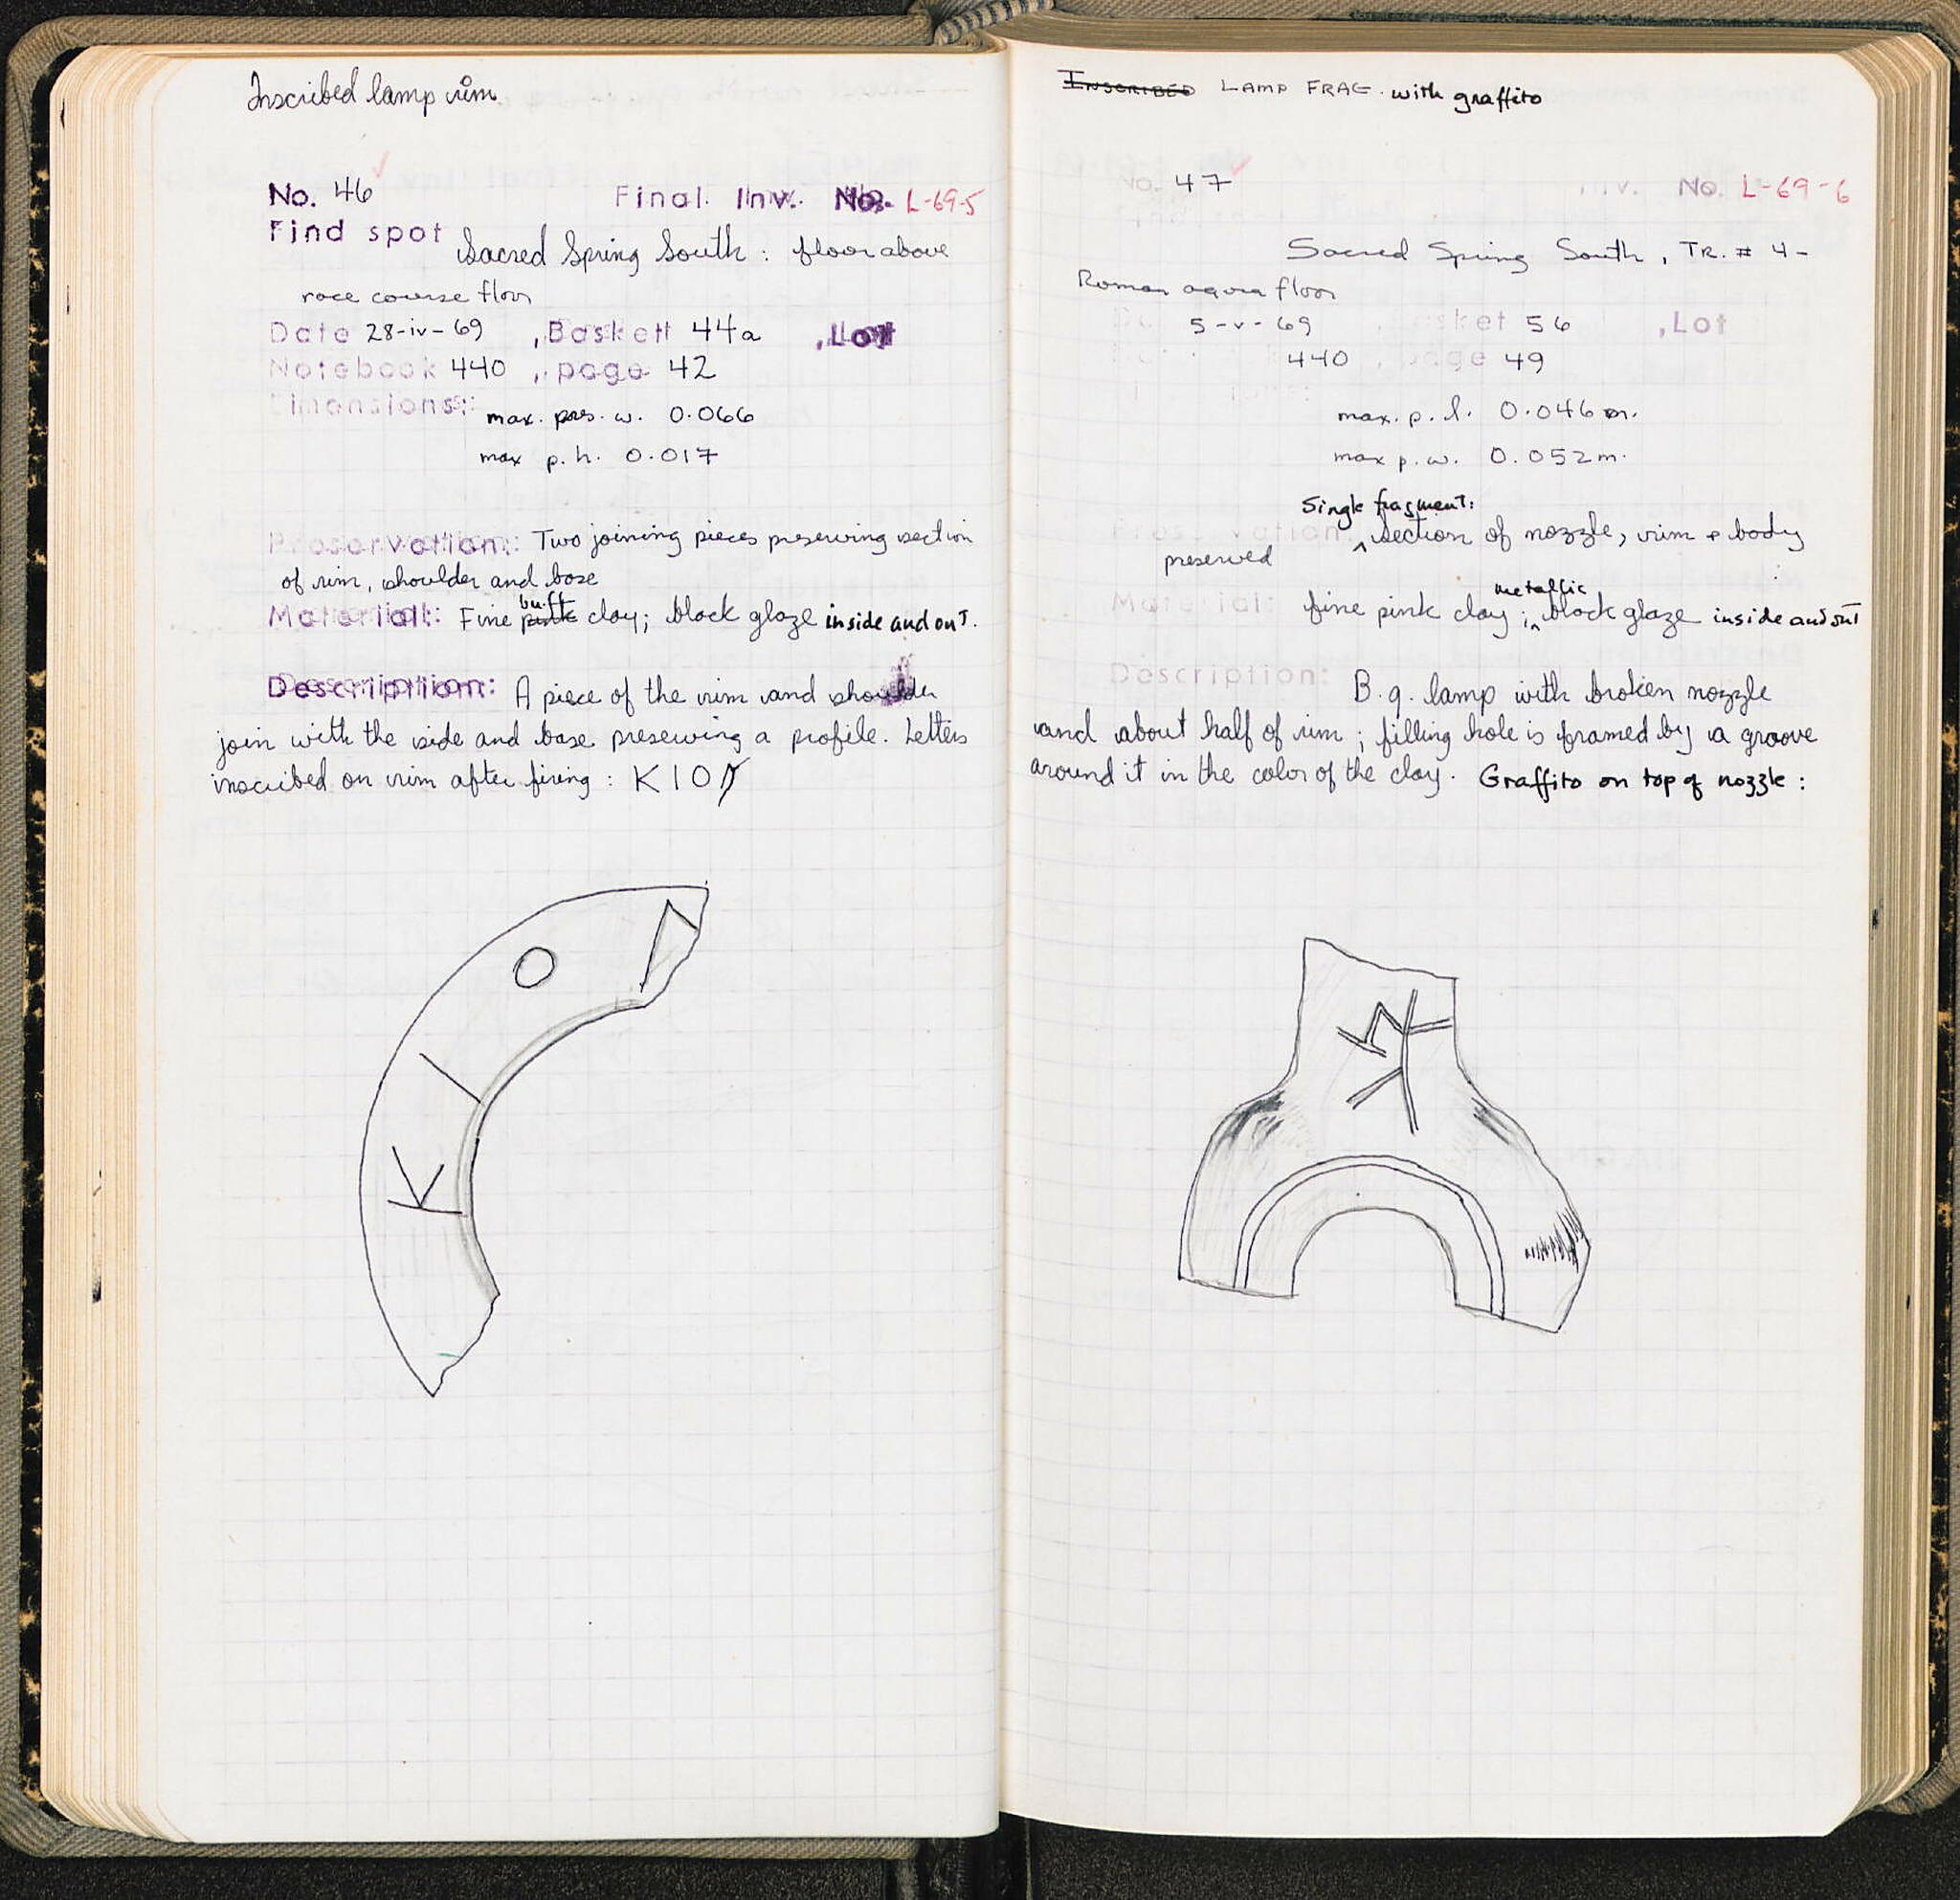 Inscribed lamp rim
No. 46 Final. Inv. No. L-69-5
Find spot Sacred Spring South : floor above
race course floor
Date 28-iv-69 , Basket 44a , Lot
Notebook 440 , page 42
Dimensions: max. pres. w. 0.066
max p. h. 0.017
Preservation: Two joining pieces preserving section
of rim, shoulder and base
buff
Material: Fine pink clay; black glaze inside and out.
Description: A piece of the rim and shoulder
join with the side and base preserving a profile. Letters
inscribed on rim after firing : K I O
K I O
INSCRIBED LAMP FRAG. with graffito
No. 47 Inv. No. L-69-6
Sacred Spring South , TR. # 4 -
Roman agora floor
5-v-69 , Basket 56 , Lot
440 , page 49
max. p. l. 0.046 m.
max p. w. 0.052 m.
Single fragment:
Preservation: section of nozzle, rim + body
preserved
metallic
Material: fine pink clay ; black glaze inside and out
Description: B. g. lamp with broken nozzle
and about half of rim ; filling hole is framed by a groove
around it in the color of the clay. Graffito on top of nozzle :